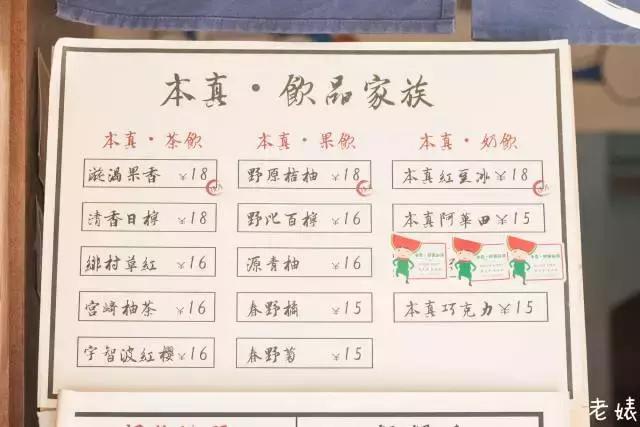 本真・飲品家族
本真・茶飲
滋潤果香 ¥18
清香日檸 ¥18
鄉村草紅 ¥16
宮崎柚茶 ¥16
宇智波紅櫻 ¥16
本真・果飲
野原桔柚 ¥18
野比百檸 ¥16
源青柚 ¥16
春野橘 ¥15
春野莓 ¥15
本真・奶飲
本真紅豆冰 ¥18
本真阿華田 ¥15
本真巧克力 ¥15
老婊